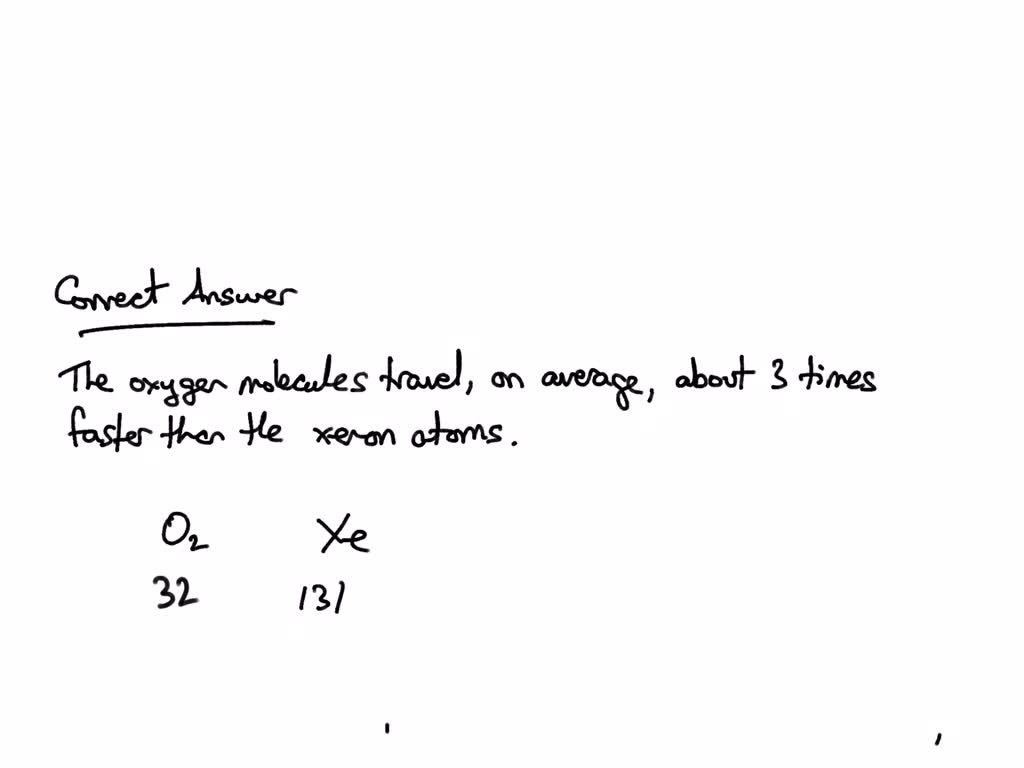 Correct Answer
The oxygen molecules travel, on average, about 3 times
faster than the xenon atoms.
O₂ Xe
32 131